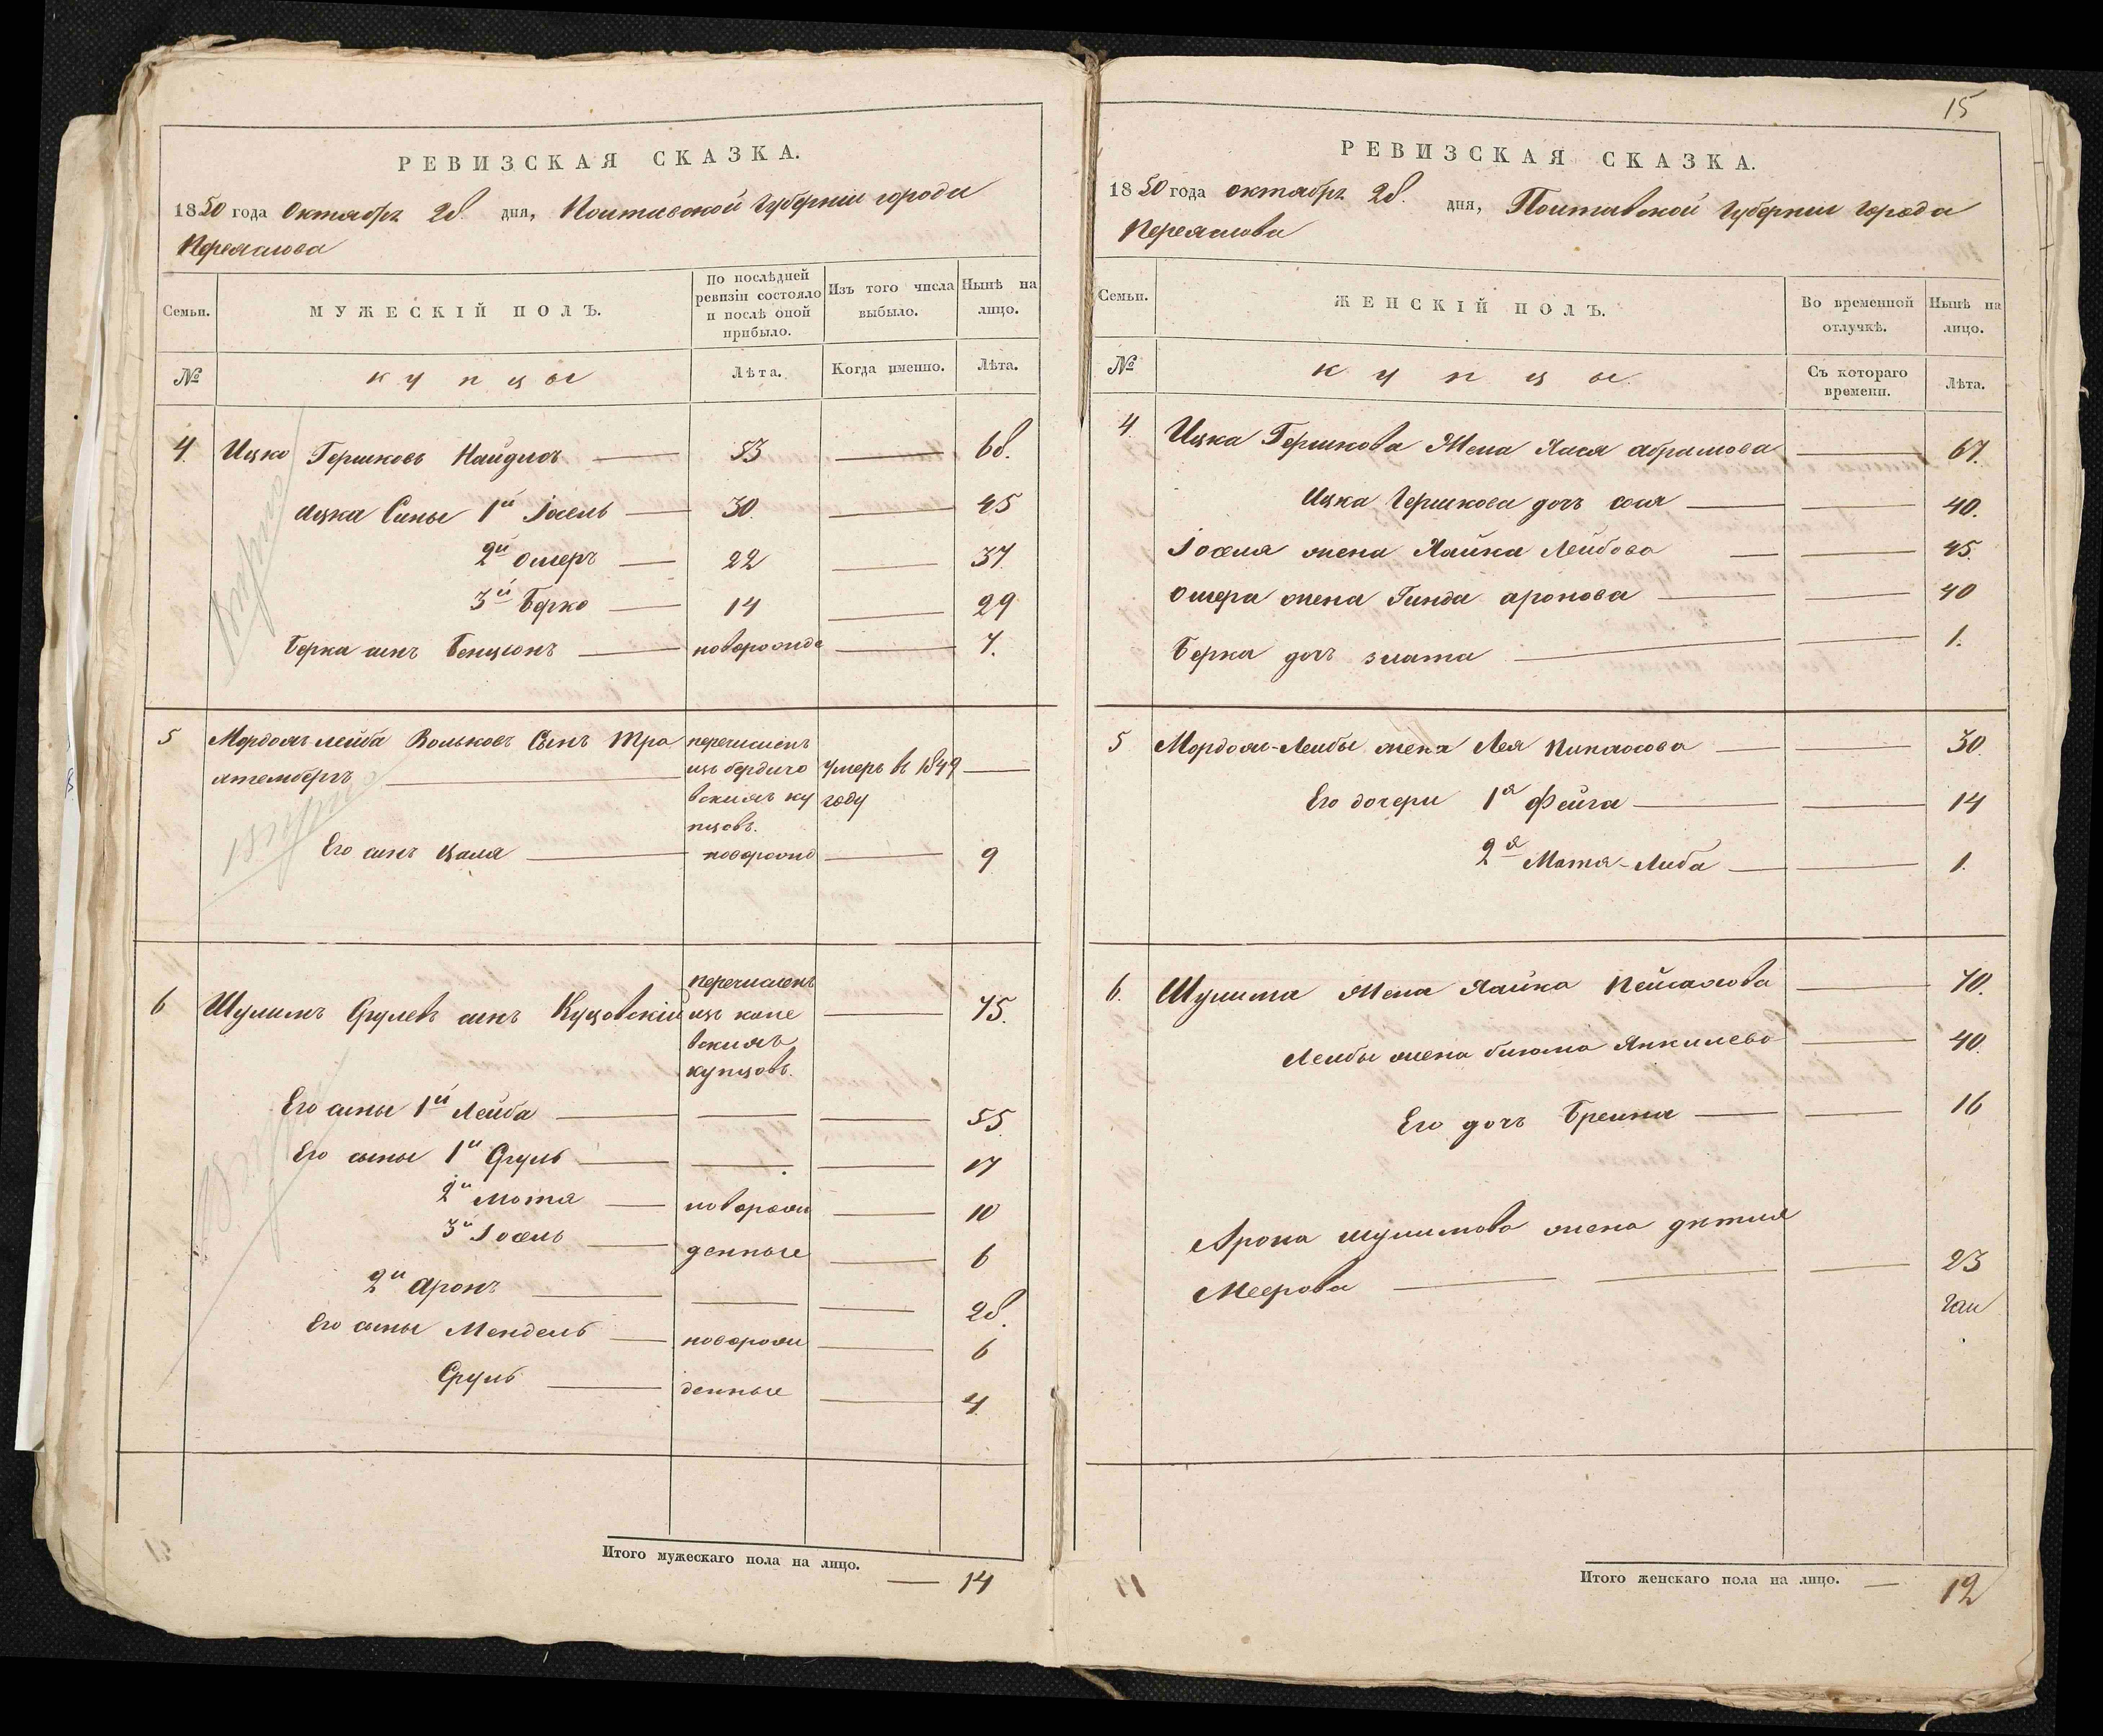 РЕВИЗСКАЯ СКАЗКА.
1850 года Октября 28. дня, Полтавской Губернии города
Переяслова
Семьи.
МУЖЕСКІЙ ПОЛЪ.
По послѣдней ревизіи состояло и послѣ оной прибыло.
Изъ того числа выбыло.
Нынѣ на лицо.
№
купцы
Лѣта.
Когда именно.
Лѣта.
4. Ицко Гершковъ Найдисъ — 53 — 68.
Ицка Сыны 1й Іосель — 30. — 45
2й Ошеръ — 22 — 37
3й Берко — 14 — 29
Берка сынъ Бенціонъ — новорожде — 7.
5 Мордохъ лейба Вольковъ Сынъ Тра перечисленъ
хтембергъ — изъ бердиче умеръ въ 1849 —
вскихъ ку году
пцовъ.
Его сынъ Цаля — новорожд — 9
перечисленъ
6 Шулимъ Срулевъ сынъ Куцовскій изъ кане — 75.
вскихъ
купцовъ.
Его сыны 1й Лейба — — — 55
Его сыны 1й Сруль — — — 17
2й Мотя — новорож — 10
3й Іосель — денные — 6
2й Аронъ — — — 28.
Его сыны Мендель — новорож — 6
Сруль — денные — 4
Итого мужескаго пола на лицо. — 14
15
РЕВИЗСКАЯ СКАЗКА.
1850 года октября 28. дня, Полтавской Губернии города
Переяслова
Семьи.
ЖЕНСКІЙ ПОЛЪ.
Во временной отлучкѣ.
Нынѣ на лицо.
№
купцы.
Съ котораго времени.
Лѣта.
4. Ицка Гершкова Жена Хася абрамова — 67.
Ицка Гершкова дочь сося — — 40.
Іоселя жена Хайка Лейбова — — 45.
Ошера жена Гинда аронова — — 40
Берка дочь злата — — 1.
5 Мордохи-Лейбы жена Лея Пинхосова — — 30.
Его дочери 1я Фейга — — 14
2я Матя-Либа — — 1.
6. Шулима Жена Хайка Пейсахова — 70.
Лейбы жена блюма Янкилева — 40.
Его дочь Брейна — — 16
Арона шулимова жена
Меерова — — — 23
Итого женскаго пола на лицо. — 12